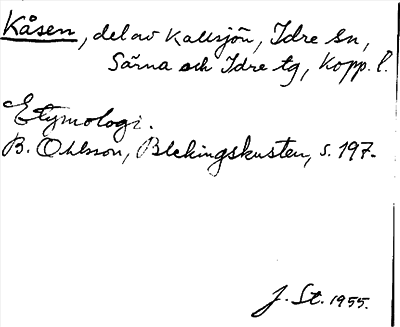 Kåsen, del av Kallsjön, Idre sn,
Särna och Idre tg, Kopp. l.
Etymologi.
B. Ohlsson, Blekingskusten, s. 197.
J. St. 1955.